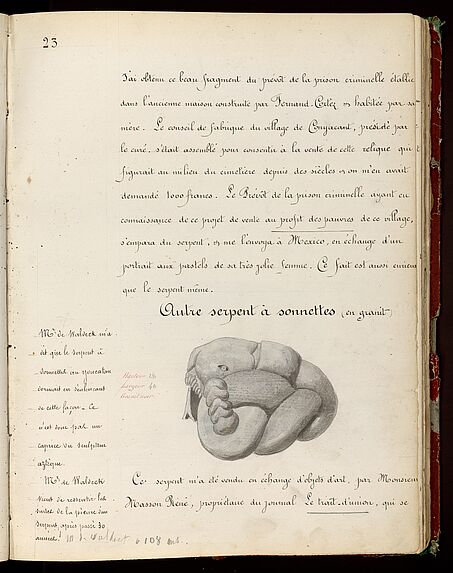 23
J'ai obtenu ce beau fragment du prévôt de la prison criminelle établie
dans l'ancienne maison construite par Fernand-Cortez et habitée par sa
mère. Le conseil de fabrique du village de Conyacant, présidé par
le curé, s'était assemblé pour consentir à la vente de cette relique qui
figurait au milieu du cimetière depuis des siècles et on m'en avait
demandé 1000 francs. Le Prévôt de la prison criminelle ayant eu
connaissance de ce projet de vente au profit des pauvres de ce village,
s'empara du serpent, et me l'envoya à Mexico, en échange d'un
portrait aux pastels de sa très jolie femme. Ce fait est aussi curieux
que le serpent même.
Autre serpent à sonnettes (en granit)
Mr de Waldeck m'a
dit que le serpent à
sonnettes au Yucatan
dormait en s'enlaçant
de cette façon. Ce
n'est donc pas un
caprice du sculpteur
aztèque.
Hauteur
Largeur
Mr de Waldeck
vient de ressentir les
suites de la piqure d'un
serpent, après passé 30
années! M. de Waldeck a 108 ans.
Ce serpent m'a été vendu en échange d'objets d'art, par Monsieur
Masson René, propriétaire du journal Le trait-d'union, qui se